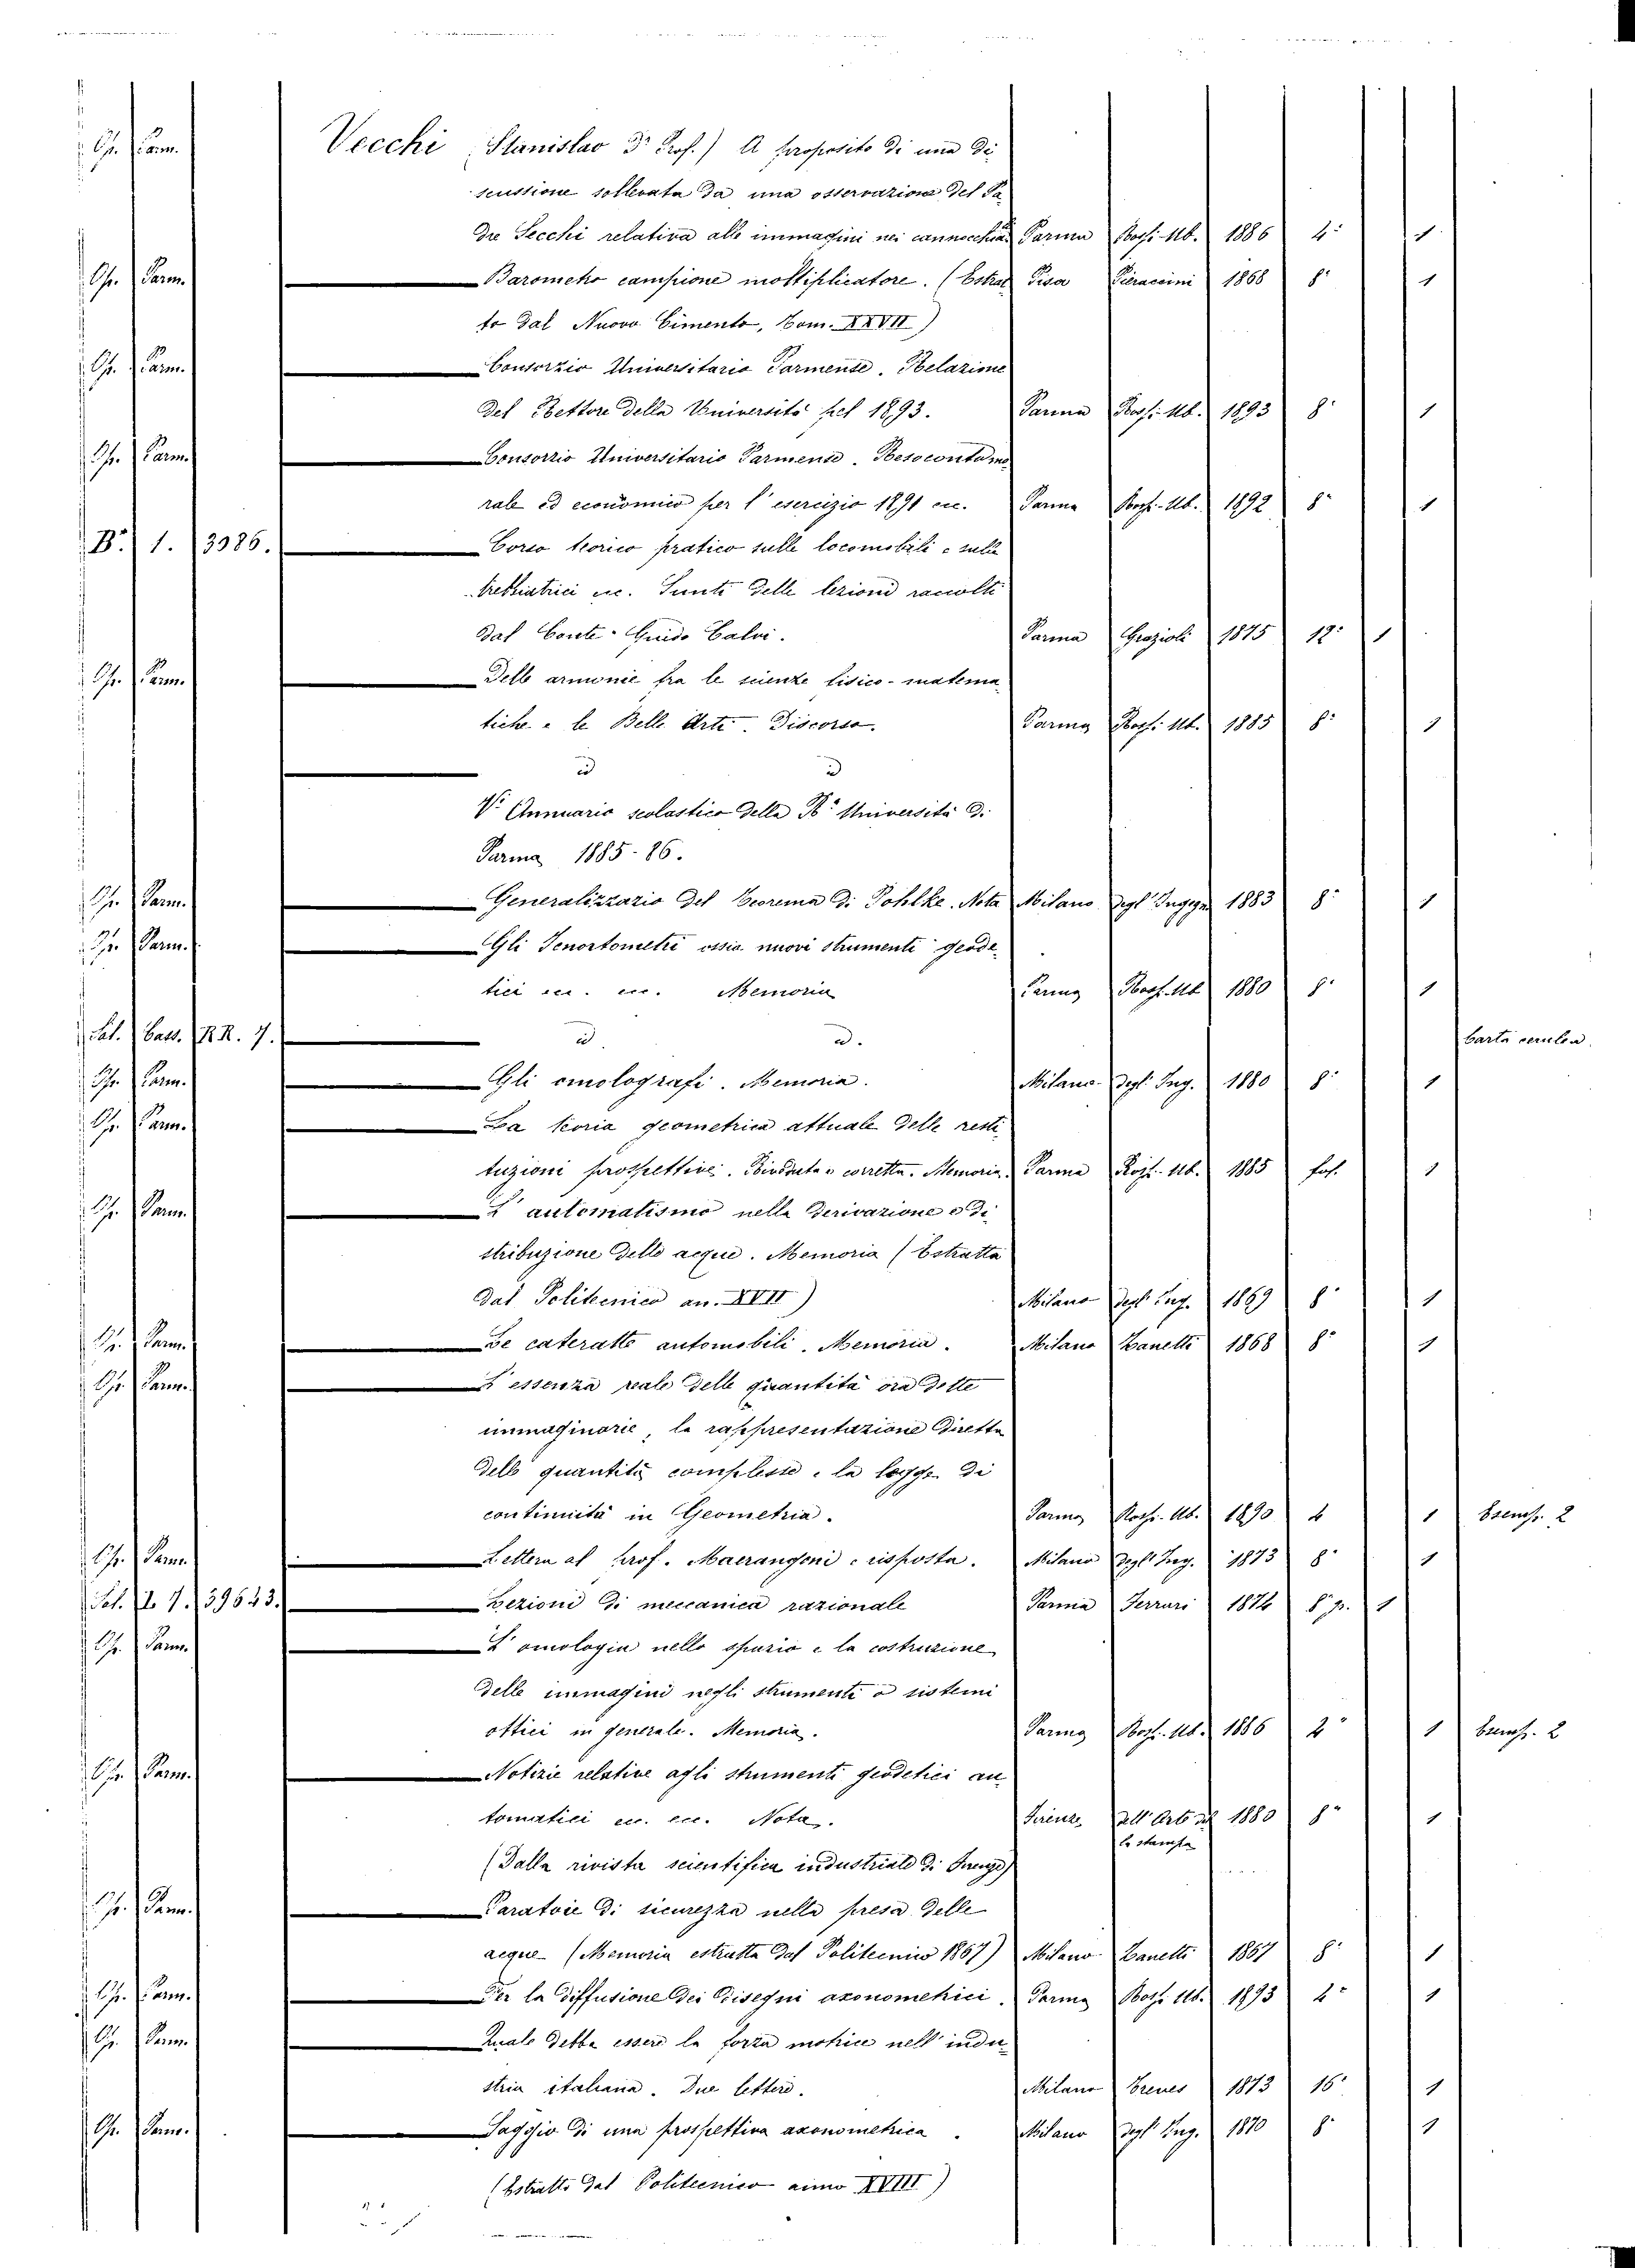 Op. Parm. Vecchi (Stanislao Dr. Prof.) A proposito di una di
scussione sollevata da una osservazione del Pa
dre Secchi relativa alle immagini nei cannocchiali Parma Rossi-Ub. 1886 4° 1
Op. Parm. Barometro campione moltiplicatore. (Estrat Pisa Pieraccini 1868 8° 1
to dal Nuovo Cimento, Tom. XXVII)
Op. Parm. Consorzio Universitario Parmense. Relazione
del Rettore della Università pel 1893. Parma Rossi-Ub. 1893 8° 1
Op. Parm. Consorzio Universitario Parmense. Resoconto mo
rale ed economico per l'esercizio 1891 ec. Parma Rossi-Ub. 1892 8° 1
B. 1. 3986. Corso teorico pratico sulle locomobili e sulle
trebbiatrici ec. Sunti delle lezioni raccolti
dal Conte Guido Calvi. Parma Grazioli 1875 12° 1
Op. Parm. Delle armonie fra le scienze fisico-matema
tiche e le Belle Arti. Discorso. Parma Rossi-Ub. 1885 8° 1
id id
V. Annuario scolastico della R. Università di
Parma 1885-86.
Op. Parm. Generalizzazio del Teorema di Pohlke. Nota Milano degl' Ingegn. 1883 8° 1
Op. Parm. Gli Tenortometri ossia nuovi strumenti geode
tici ec. ec. Memoria Parma Rossi-Ub. 1880 8° 1
Sal. Cass. RR. 7. id id. Carta cerulea.
Op. Parm. Gli omolografi. Memoria. Milano degl' Ing. 1880 8° 1
Op. Parm. La teoria geometrica attuale delle resti
tuzioni prospettive. Riveduta e corretta. Memoria. Parma Rossi-Ub. 1885 fol. 1
Op. Parm. L'automatismo nella derivazione e di
stribuzione delle acque. Memoria (Estratta
dal Politecnico an. XVII) Milano degl' Ing. 1869 8° 1
Op. Parm. Le cateratte automobili. Memoria. Milano Zanetti 1868 8° 1
Op. Parm. L'essenza reale delle quantità ora dette
immaginarie, la rappresentazione diretta
delle quantità complesse e la legge di
continuità in Geometria. Parma Rossi-Ub. 1890 4 1 Esemp. 2
Op. Parm. Lettera al prof. Macrangoni e risposta. Milano degl' Ing. 1873 8° 1
Sal. 7. 39643. Lezioni di meccanica razionale Parma Ferrari 1874 8° p. 1
Op. Parm. L'omologia nello spazio e la costruzione
delle immagini negli strumenti o sistemi
ottici in generale. Memoria. Parma Rossi-Ub. 1886 4° 1 Esemp. 2
Op. Parm. Notizie relative agli strumenti geodetici au
tomatici ec. ecc. Nota. Firenze dell' Arte del 1880 8° 1
la stampa
(Dalla rivista scientifica industriale di Firenze)
Op. Parm. Paratoie di sicurezza nella presa delle
acque (Memoria estratta dal Politecnico 1867) Milano Zanetti 1867 8° 1
Op. Parm. Per la diffusione dei disegni axonometrici. Parma Rossi Ub. 1893 4° 1
Op. Parm. Quale debba essere la forza motrice nell'indu
stria italiana. Due lettere. Milano Treves 1873 16° 1
Op. Parm. Saggio di una prospettiva axonometrica. Milano degl' Ing. 1870 8° 1
(Estratto dal Politecnico anno XVIII)